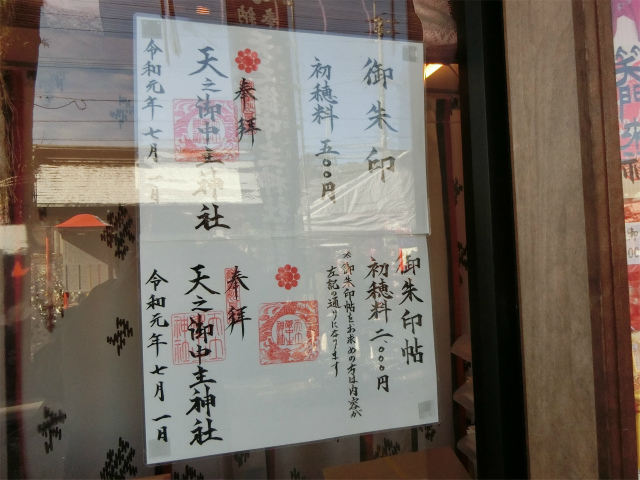 御朱印
初穂料 五〇〇円
奉拝
天之御中主神社
令和元年七月一日
御朱印帖
初穂料 二、〇〇〇円
*御朱印帖をお求めの方は内容が
左記の通りになります
奉拝
天之御中主神社
令和元年七月一日
笑門来福